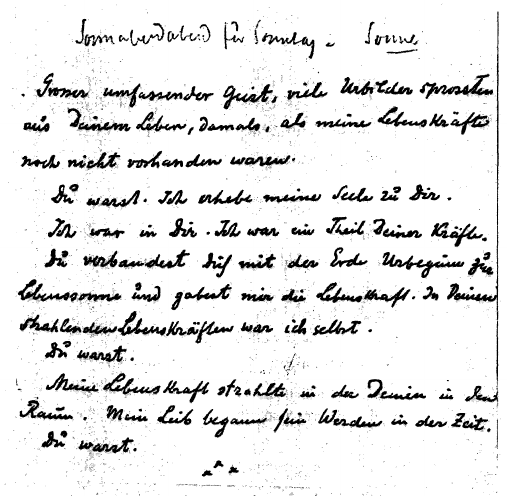 Sonnabendabend für Sonntag. Sonne
Grosser umfassender Geist, viele Urbilder sprossten
aus Deinem Leben, damals, als meine Lebenskräfte
noch nicht vorhanden waren.
Du warst. Ich erhebe meine Seele zu Dir.
Ich war in Dir. Ich war ein Theil Deiner Kräfte.
Du verbandest Dich mit der Erde Urbeginn zur
Lebenssonne und gabest mir die Lebenskraft. In Deinen
strahlenden Lebenskräften war ich selbst.
Du warst.
Meine Lebenskraft strahlte in der Deinen in den
Raum. Mein Leib begann sein Werden in der Zeit.
Du warst.